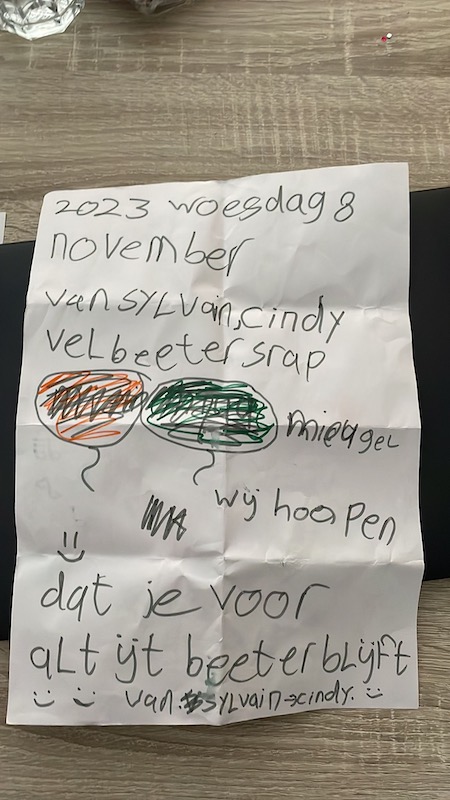 2023 woesdag 8
november
van SYLvain,cindy
veL beeter srap
mieagel
wij hoopen
dat je voor
aLt ijt beeter bLijft
van SYLvain→cindy.